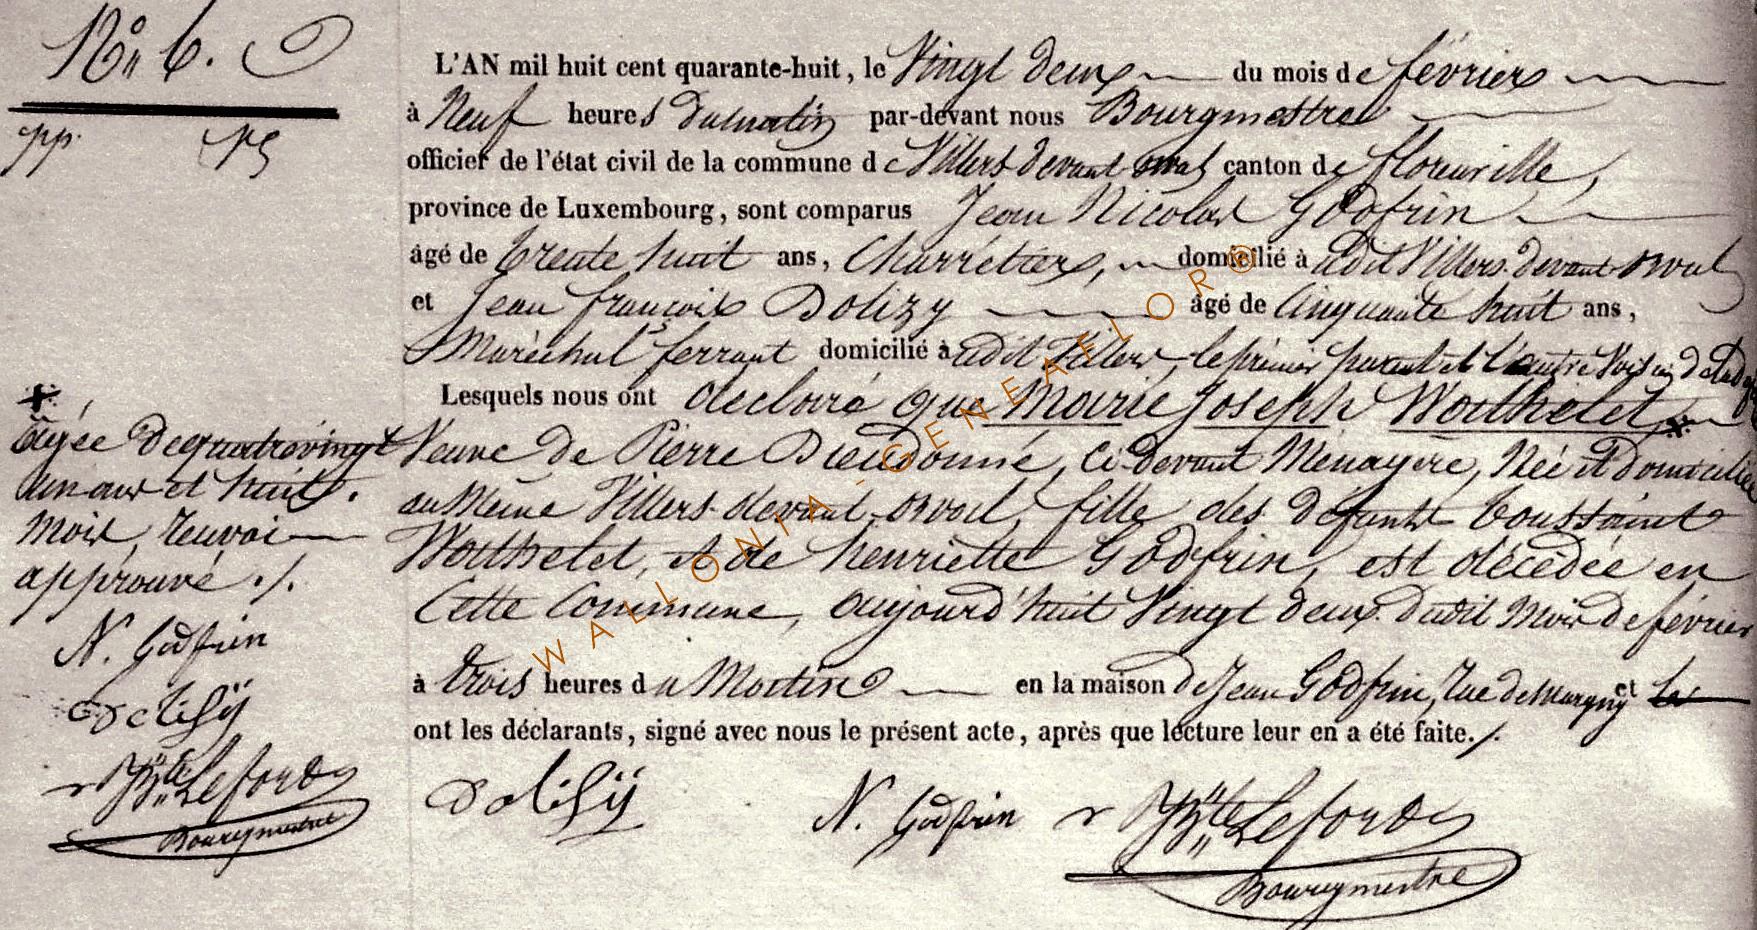 N° 6.
L'AN mil huit cent quarante-huit, le Vingt deux du mois de février
à Neuf heures du matin par-devant nous Bourgmestre
officier de l'état civil de la commune de Villers devant orval canton de florenville,
province de Luxembourg, sont comparus Jean Nicolas Godfrin
âgé de trente huit ans, Charrétier, domicilié à udit Villers-devant-orval
et Jean françois Dolizy âgé de Cinquante huit ans,
Maréchal ferrant domicilié à udit Villers, le prémier parent et l'autre Voisin de
Lesquels nous ont déclaré que Marie Joseph Wathelet,
Veuve de Pierre Dieudonné, Ci-devant Ménagère, Née et domiciliée
au Même Villers-devant-orval, fille des défunts Toussaint
Wathelet, et de henriette Godfrin, est décédée en
Cette Commune, aujourd'huit Vingt deux dudit Mois de février
à trois heures du Matin en la maison de Jean Godfrin, rue de Margny et
ont les déclarants, signé avec nous le présent acte, après que lecture leur en a été faite./.
Dolisÿ N. Godfrin Bte Lefort
Bourgmestre
âgée de quatrevingt
un ans et huit
mois, renvoi
approuvé ./.
N. Godfrin
Dolisÿ
Bte Lefort
Bourgmestre
WALLONIA-GENEAFLOR®